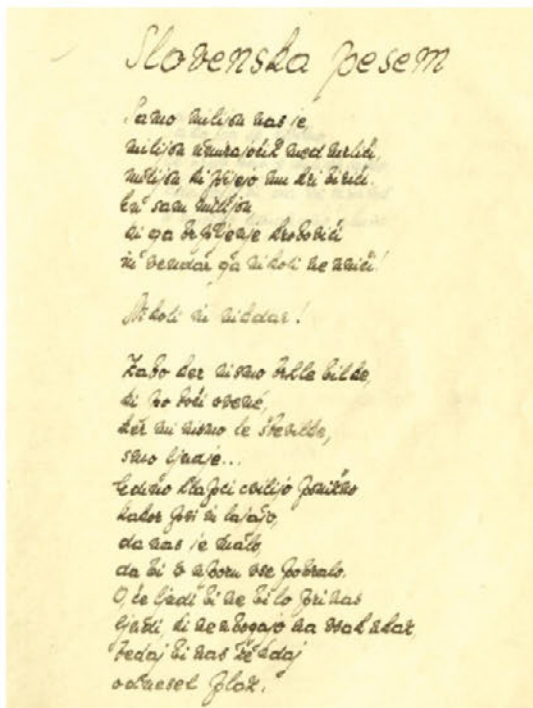 Slovenska pesem
Samo milijon nas je,
milijon umirajočih med mrliči,
milijon ki pijejo mu kri biriči.
En sam milijon,
ki ga trpljenje krotoviči
in vendar ga nikoli ne uniči!
Nikoli in nikdar!
Zato ker nismo trhle bilke,
ki po toči ovene,
ker mi nismo le številke,
smo ljudje...
Edino hlapci cvilijo ponižno
kakor psi in lajajo,
da nas je malo,
da bi v uporu vse pobralo.
O, če ljudi bi ne bilo pri nas
ljudi, ki ne ubogajo na vsak ukaz
tedaj bi nas že kdaj
odnesel plaz.